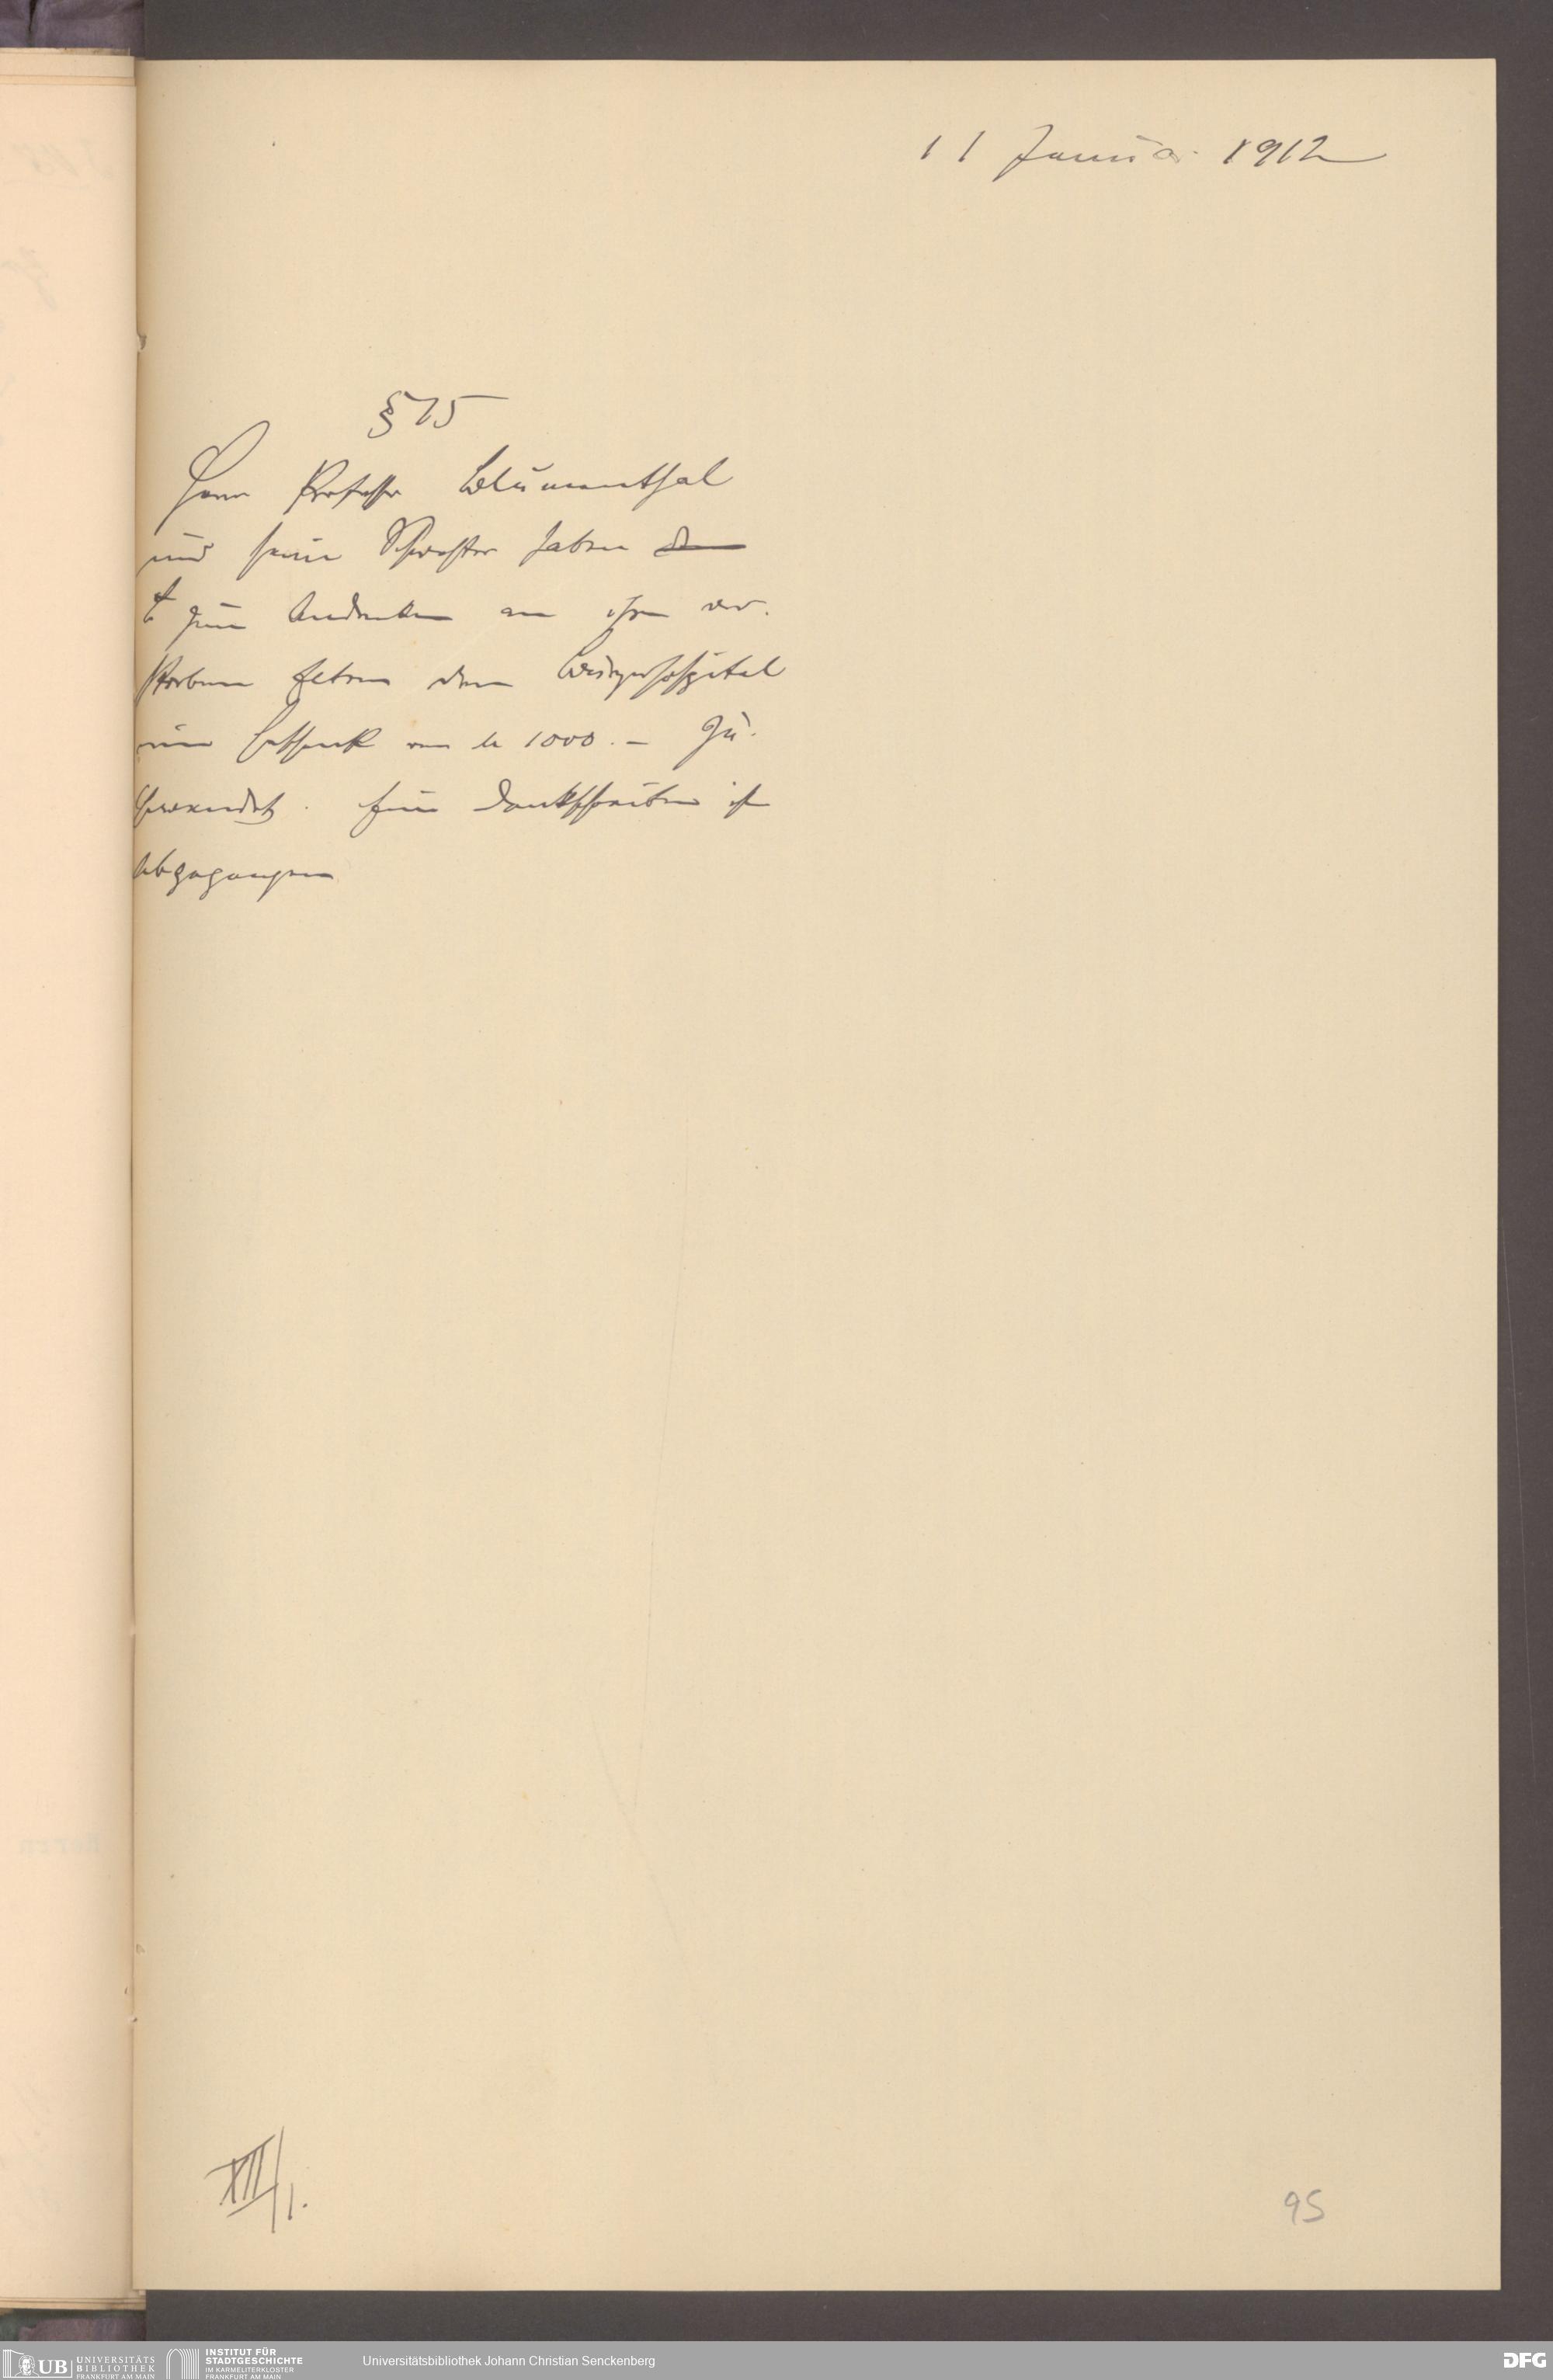 11 Januar 1912
§ 75
Herr Professor Blumenthal
und seine Schwester haben
zum Andenken an ihre ver-
storbenen Eltern dem Bürgerhospital
ein Geschenk von M 1000.– zu-
gewendet. Ein Dankschreiben ist
abgegangen
XII/1.
95
UB UNIVERSITÄTS
BIBLIOTHEK
FRANKFURT AM MAIN
INSTITUT FÜR
STADTGESCHICHTE
IM KARMELITERKLOSTER
FRANKFURT AM MAIN
Universitätsbibliothek Johann Christian Senckenberg
DFG